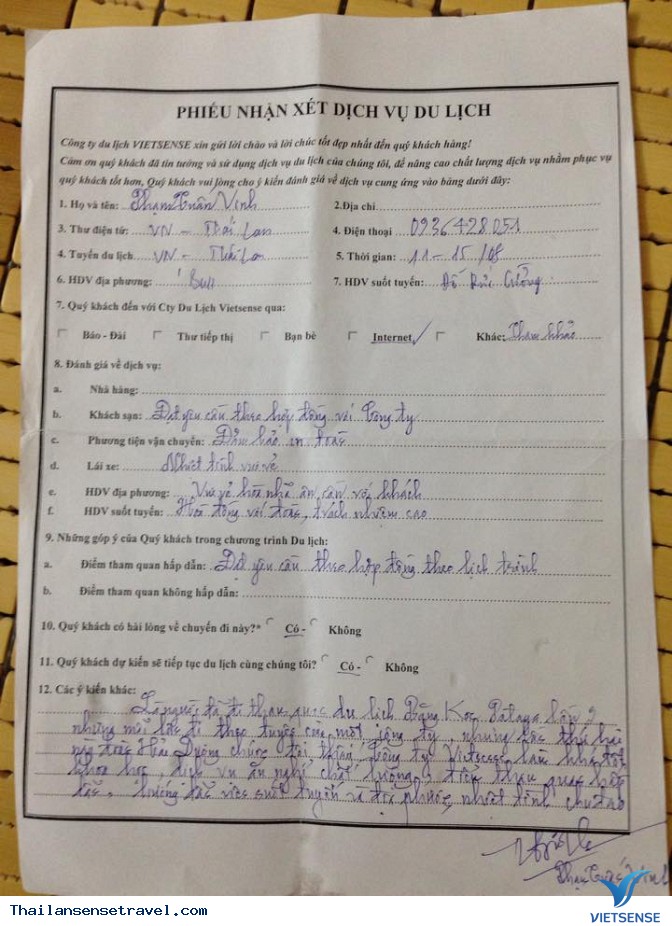 PHIẾU NHẬN XÉT DỊCH VỤ DU LỊCH
Công ty du lịch VIETSENSE xin gửi lời chào và lời chúc tốt đẹp nhất đến quý khách hàng!
Cám ơn quý khách đã tin tưởng và sử dụng dịch vụ du lịch của chúng tôi, để nâng cao chất lượng dịch vụ nhằm phục vụ
quý khách tốt hơn, Quý khách vui lòng cho ý kiến đánh giá về dịch vụ cung ứng vào bảng dưới đây:
1. Họ và tên: Phạm Tuấn Vinh 2.Địa chỉ
3. Thư điện tử: VN - Thái Lan 4. Điện thoại 0936428051
4. Tuyến du lịch VN - Thái Lan 5. Thời gian: 11 - 15/08
6. HDV địa phương: 7. HDV suốt tuyến: Đỗ Cường
7. Quý khách đến với Cty Du Lịch Vietsense qua:
Báo - Đài Thư tiếp thị Bạn bè Internet Khác: Tham khảo
8. Đánh giá về dịch vụ:
a. Nhà hàng:
b. Khách sạn: Đạt yêu cầu theo hợp đồng với Công ty
c. Phương tiện vận chuyển: Đảm bảo an toàn
d. Lái xe: Nhiệt tình vui vẻ
e. HDV địa phương: Vui vẻ hòa nhã ân cần với khách
f. HDV suốt tuyến: Hòa đồng với đoàn, trách nhiệm cao
9. Những góp ý của Quý khách trong chương trình Du lịch:
a. Điểm tham quan hấp dẫn: Đạt yêu cầu theo hợp đồng theo lịch trình
b. Điểm tham quan không hấp dẫn:
10. Quý khách có hài lòng về chuyến đi này?* Có - Không
11. Quý khách dự kiến sẽ tiếp tục du lịch cùng chúng tôi? Có - Không
12. Các ý kiến khác:
Là người đã đi tham quan du lịch Băng Koc Pataya lần 2
những mỗi lần đi theo tuyến của một công ty, nhưng lần thứ hai
này đoàn Hải Dương chúng tôi thấy Công ty Vietsense làm khá tốt
khoa học, dịch vụ ăn nghỉ chất lượng,
hướng dẫn viên suốt tuyến và địa phương nhiệt tình chu đáo
Vinh
Thailansensetravel.com
VIETSENSE